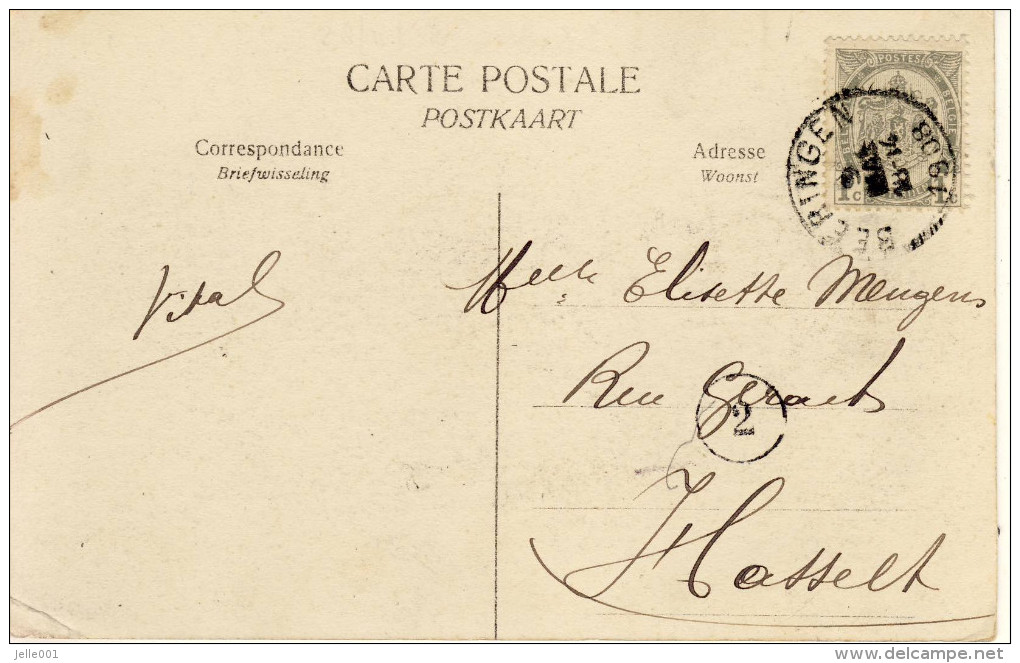 CARTE POSTALE
POSTKAART
Correspondance
Briefwisseling
Adresse
Woonst
POSTES
BELGIE
1c 1c
BEERINGEN
1908
Vital
Melle Elisette Mengens
Rue Geraets
2
Hasselt
jelle001
delcampe.net